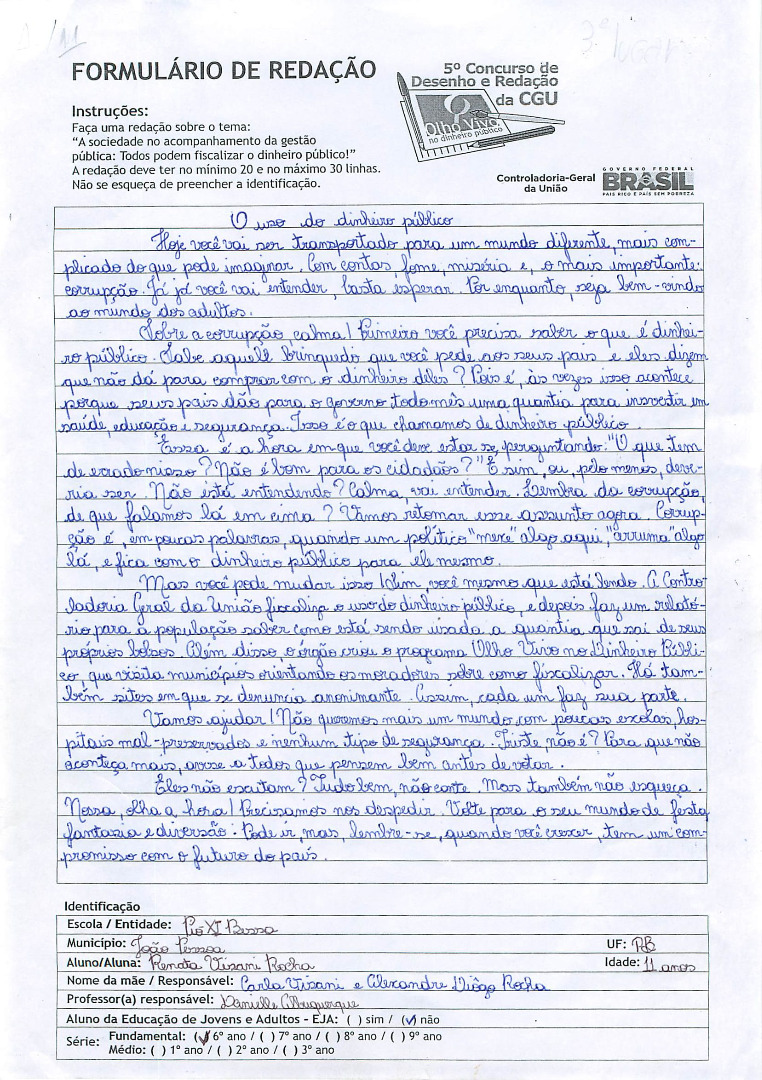 1/11
3º lugar
FORMULÁRIO DE REDAÇÃO
5º Concurso de
Desenho e Redação
da CGU
Olho Vivo
no dinheiro público
Instruções:
Faça uma redação sobre o tema:
“A sociedade no acompanhamento da gestão
pública: Todos podem fiscalizar o dinheiro público!”
A redação deve ter no mínimo 20 e no máximo 30 linhas.
Não se esqueça de preencher a identificação.
Controladoria-Geral
da União
GOVERNO FEDERAL
BRASIL
PAÍS RICO É PAÍS SEM POBREZA
O uso do dinheiro público
Hoje você vai ser transportado para um mundo diferente, mais com-
plicado do que pode imaginar. Com contas, fome, miséria e, o mais importante:
corrupção. Já já você vai entender, basta esperar. Por enquanto, seja bem-vindo
ao mundo dos adultos.
Sobre a corrupção, calma! Primeiro você precisa saber o que é dinhei-
ro público. Sabe aquele brinquedo que você pede aos seus pais e eles dizem
que não dá para comprar com o dinheiro deles? Pois é, às vezes isso acontece
porque seus pais dão para o governo todo mês uma quantia para investir em
saúde, educação e segurança. Isso é o que chamamos de dinheiro público.
Essa é a hora em que você deve estar se perguntando: "O que tem
de errado nisso? Não é bom para os cidadãos?" É sim, ou, pelo menos, deve-
ria ser. Não está entendendo? Calma, vai entender. Lembra da corrupção,
de que falamos lá em cima? Vamos retomar esse assunto agora. Corrup-
ção é, em poucas palavras, quando um político "mexe" algo aqui, "arruma" algo
lá, e fica com o dinheiro público para ele mesmo.
Mas você pode mudar isso! Sim, você mesmo que está lendo. A Contro-
ladoria Geral da União fiscaliza o uso do dinheiro público, e depois faz um relató-
rio para a população saber como está sendo usada a quantia que sai de seus
próprios bolsos. Além disso o órgão criou o programa Olho Vivo no Dinheiro Públi-
co, que visita municípios orientando os moradores sobre como fiscalizar. Há tam-
bém sites em que se denuncia anonimante. Assim, cada um faz sua parte.
Vamos ajudar! Não queremos mais um mundo com poucas escolas, hos-
pitais mal-preservados e nenhum tipo de segurança. Triste não é? Para que não
aconteça mais, avise a todos que pensem bem antes de votar.
Eles não escutam? Tudo bem, não conte. Mas também não esqueça.
Nossa, olha a hora! Precisamos nos despedir. Volte para o seu mundo de festa
fantazia e diversão. Pode ir, mas, lembre-se, quando você crescer, tem um com-
promisso com o futuro do país.
Identificação
Escola / Entidade: Pio XI Bessa
Município: João Pessoa UF: PB
Aluno/Aluna: Renata Visani Rocha Idade: 11 anos
Nome da mãe / Responsável: Carla Visani e Alexandre Diôgo Rocha
Professor(a) responsável: Danielle Albuquerque
Aluno da Educação de Jovens e Adultos - EJA: ( ) sim / (✓) não
Série: Fundamental: (✓) 6º ano / ( ) 7º ano / ( ) 8º ano / ( ) 9º ano
Médio: ( ) 1º ano / ( ) 2º ano / ( ) 3º ano